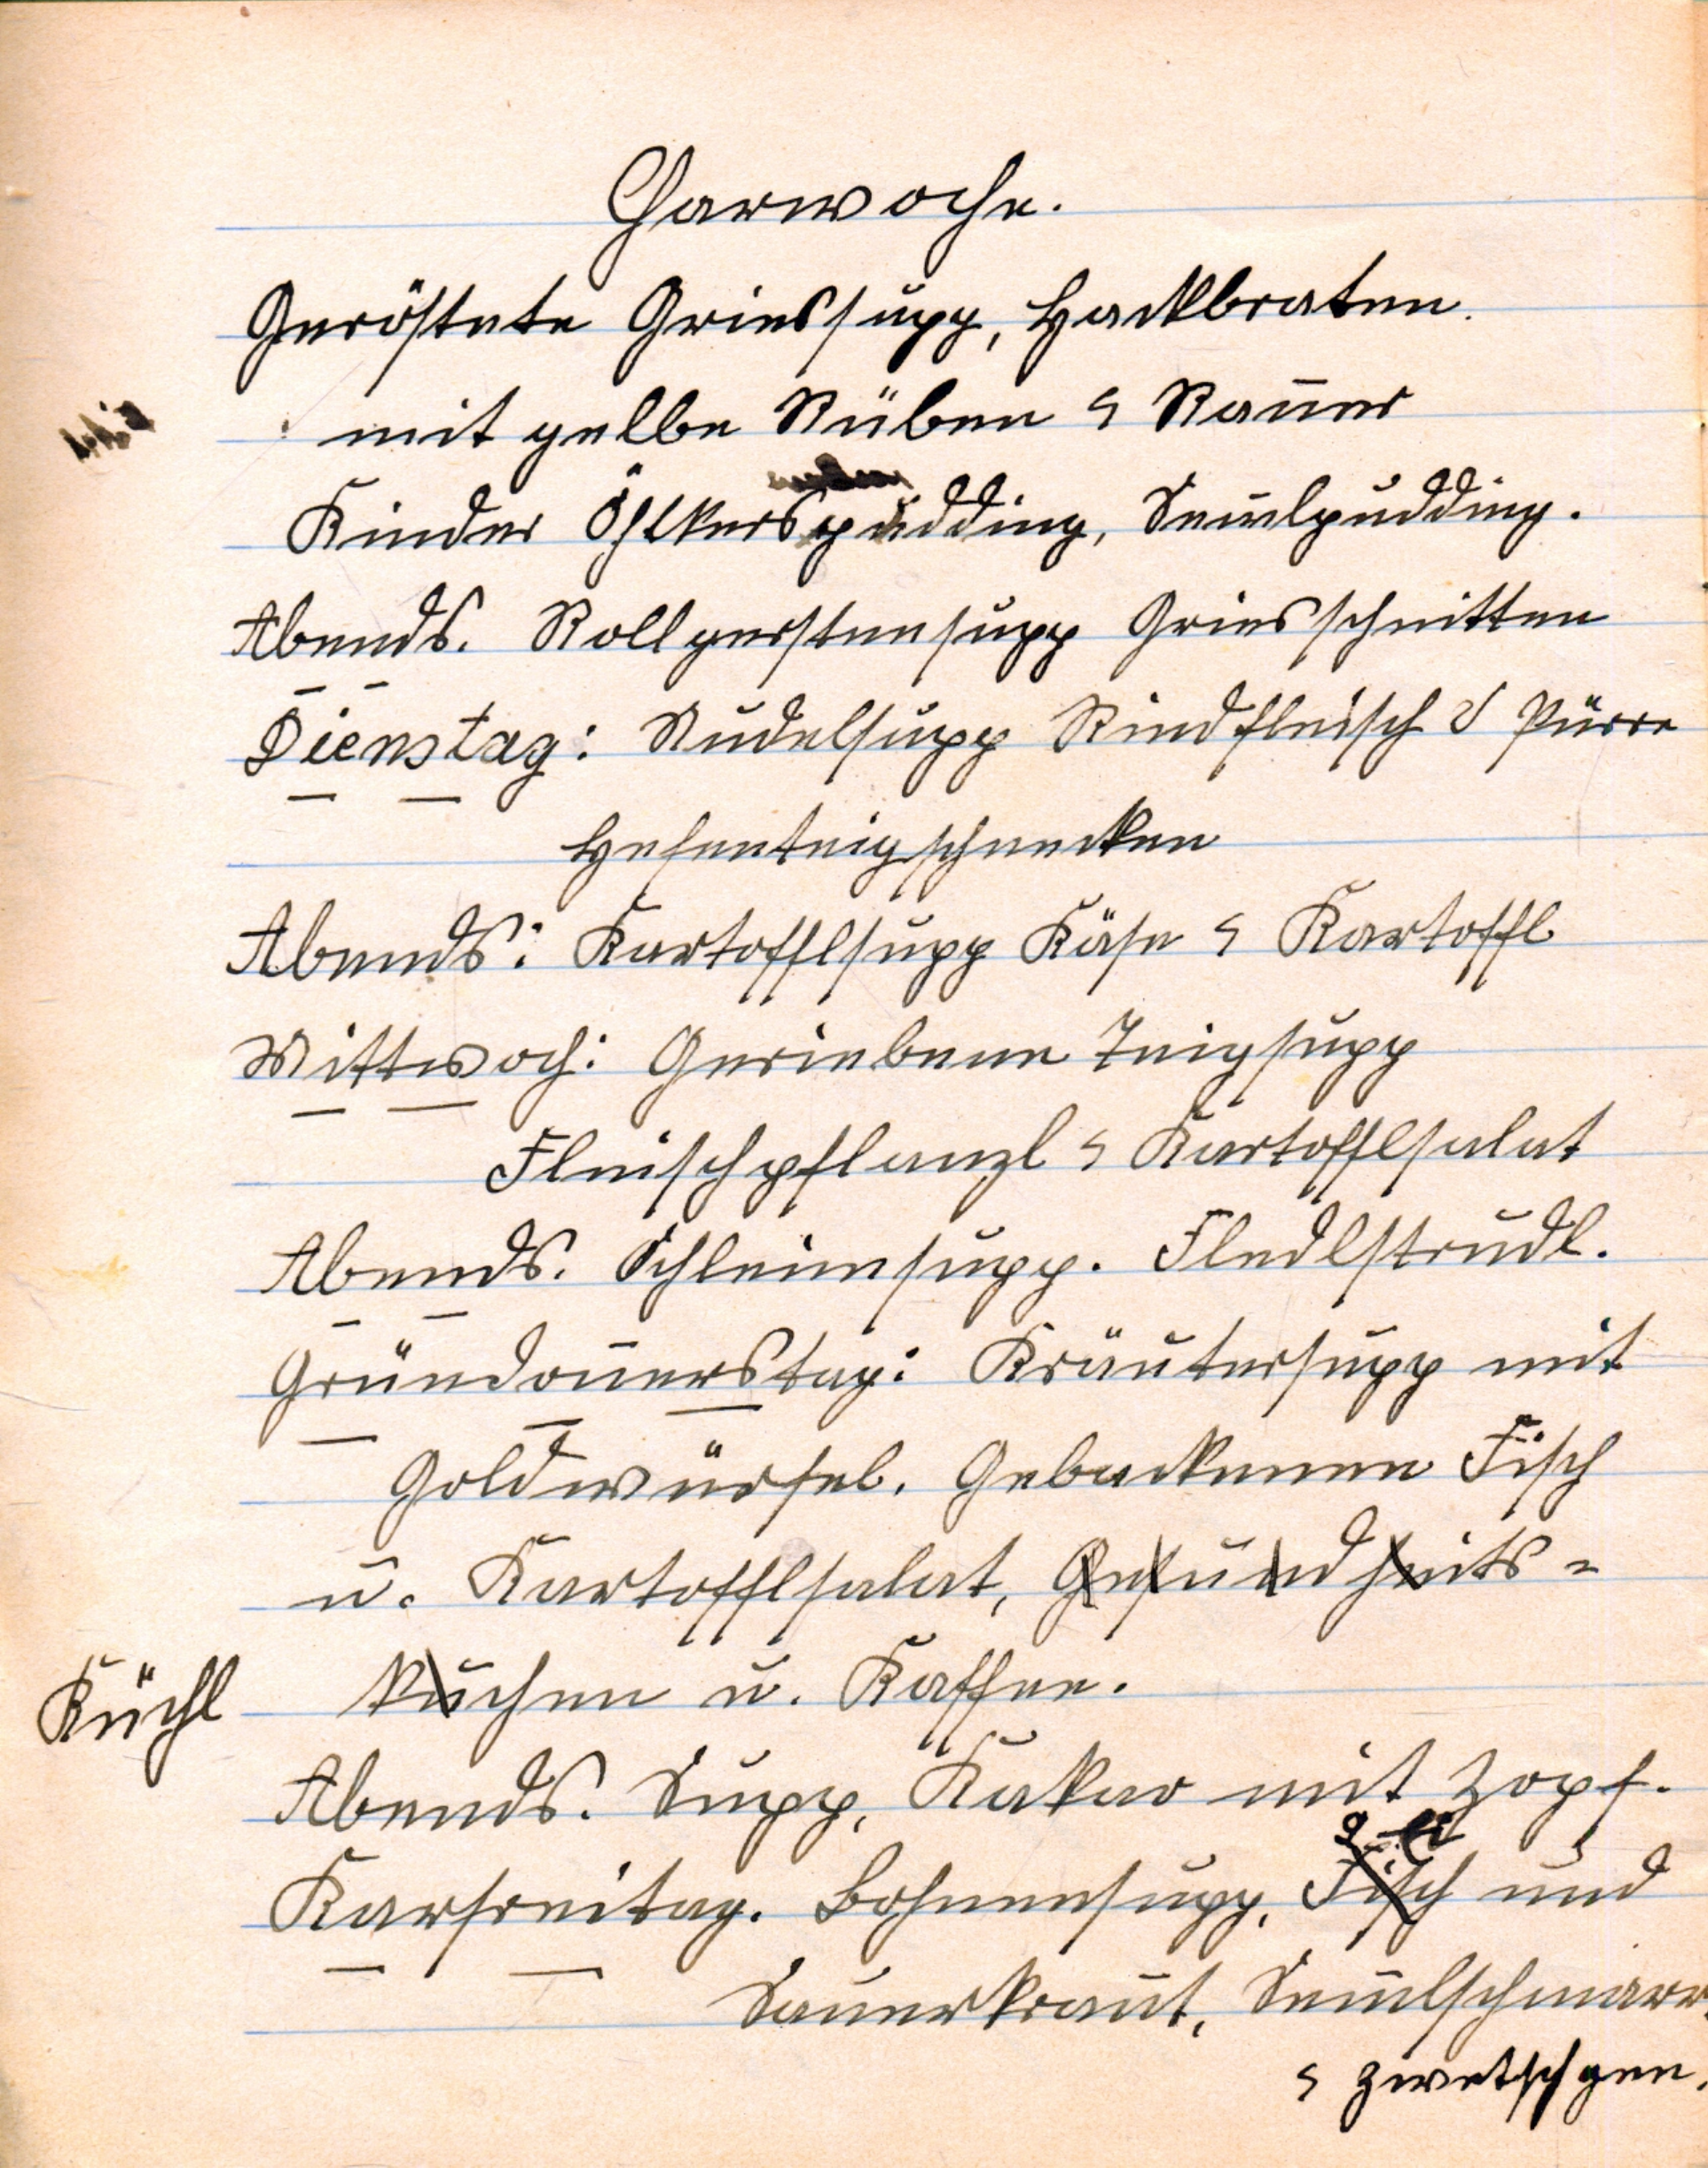 Charwoche.
Geröstete Griessupp, Hackbraten.
mit gelbe Rüben &
Kinder Öhlkerspudding, Semlpudding.
Abends. Rollgerstensupp Griesschnitten
Dienstag: Nudelsupp Rindfleisch & Pürre
Hefenteigschnecken
Abends: Kartofflsupp Käse & Kartoffl
Mittwoch: Geriebene Teigsupp
Fleischpflanzl & Kartofflsalat
Abends. Schleimsupp. Fledlstrudl.
Gründonnerstag: Kräutersupp mit
Goldwürfel. Gebackenen Fisch
u. Kartofflsalat, Gesundheits=
Küchl kuchen u. Kaffee.
Abends. Supp, Kakao mit Zopf.
Karfreitag. Bohnensupp, Fisch und
Sauerkraut, Semmlschmarr
& Zwetschgen.